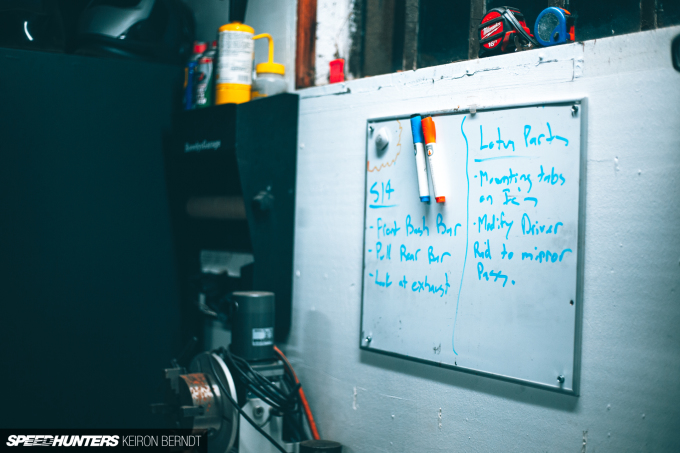 S14
- Front Bash Bar
- Pull Rear Bar
- Look at exhaust
Lotus Parts
- Mounting tabs
on
- Modify Driver
Rad to mirror
Pass.
SPEEDHUNTERS KEIRON BERNDT